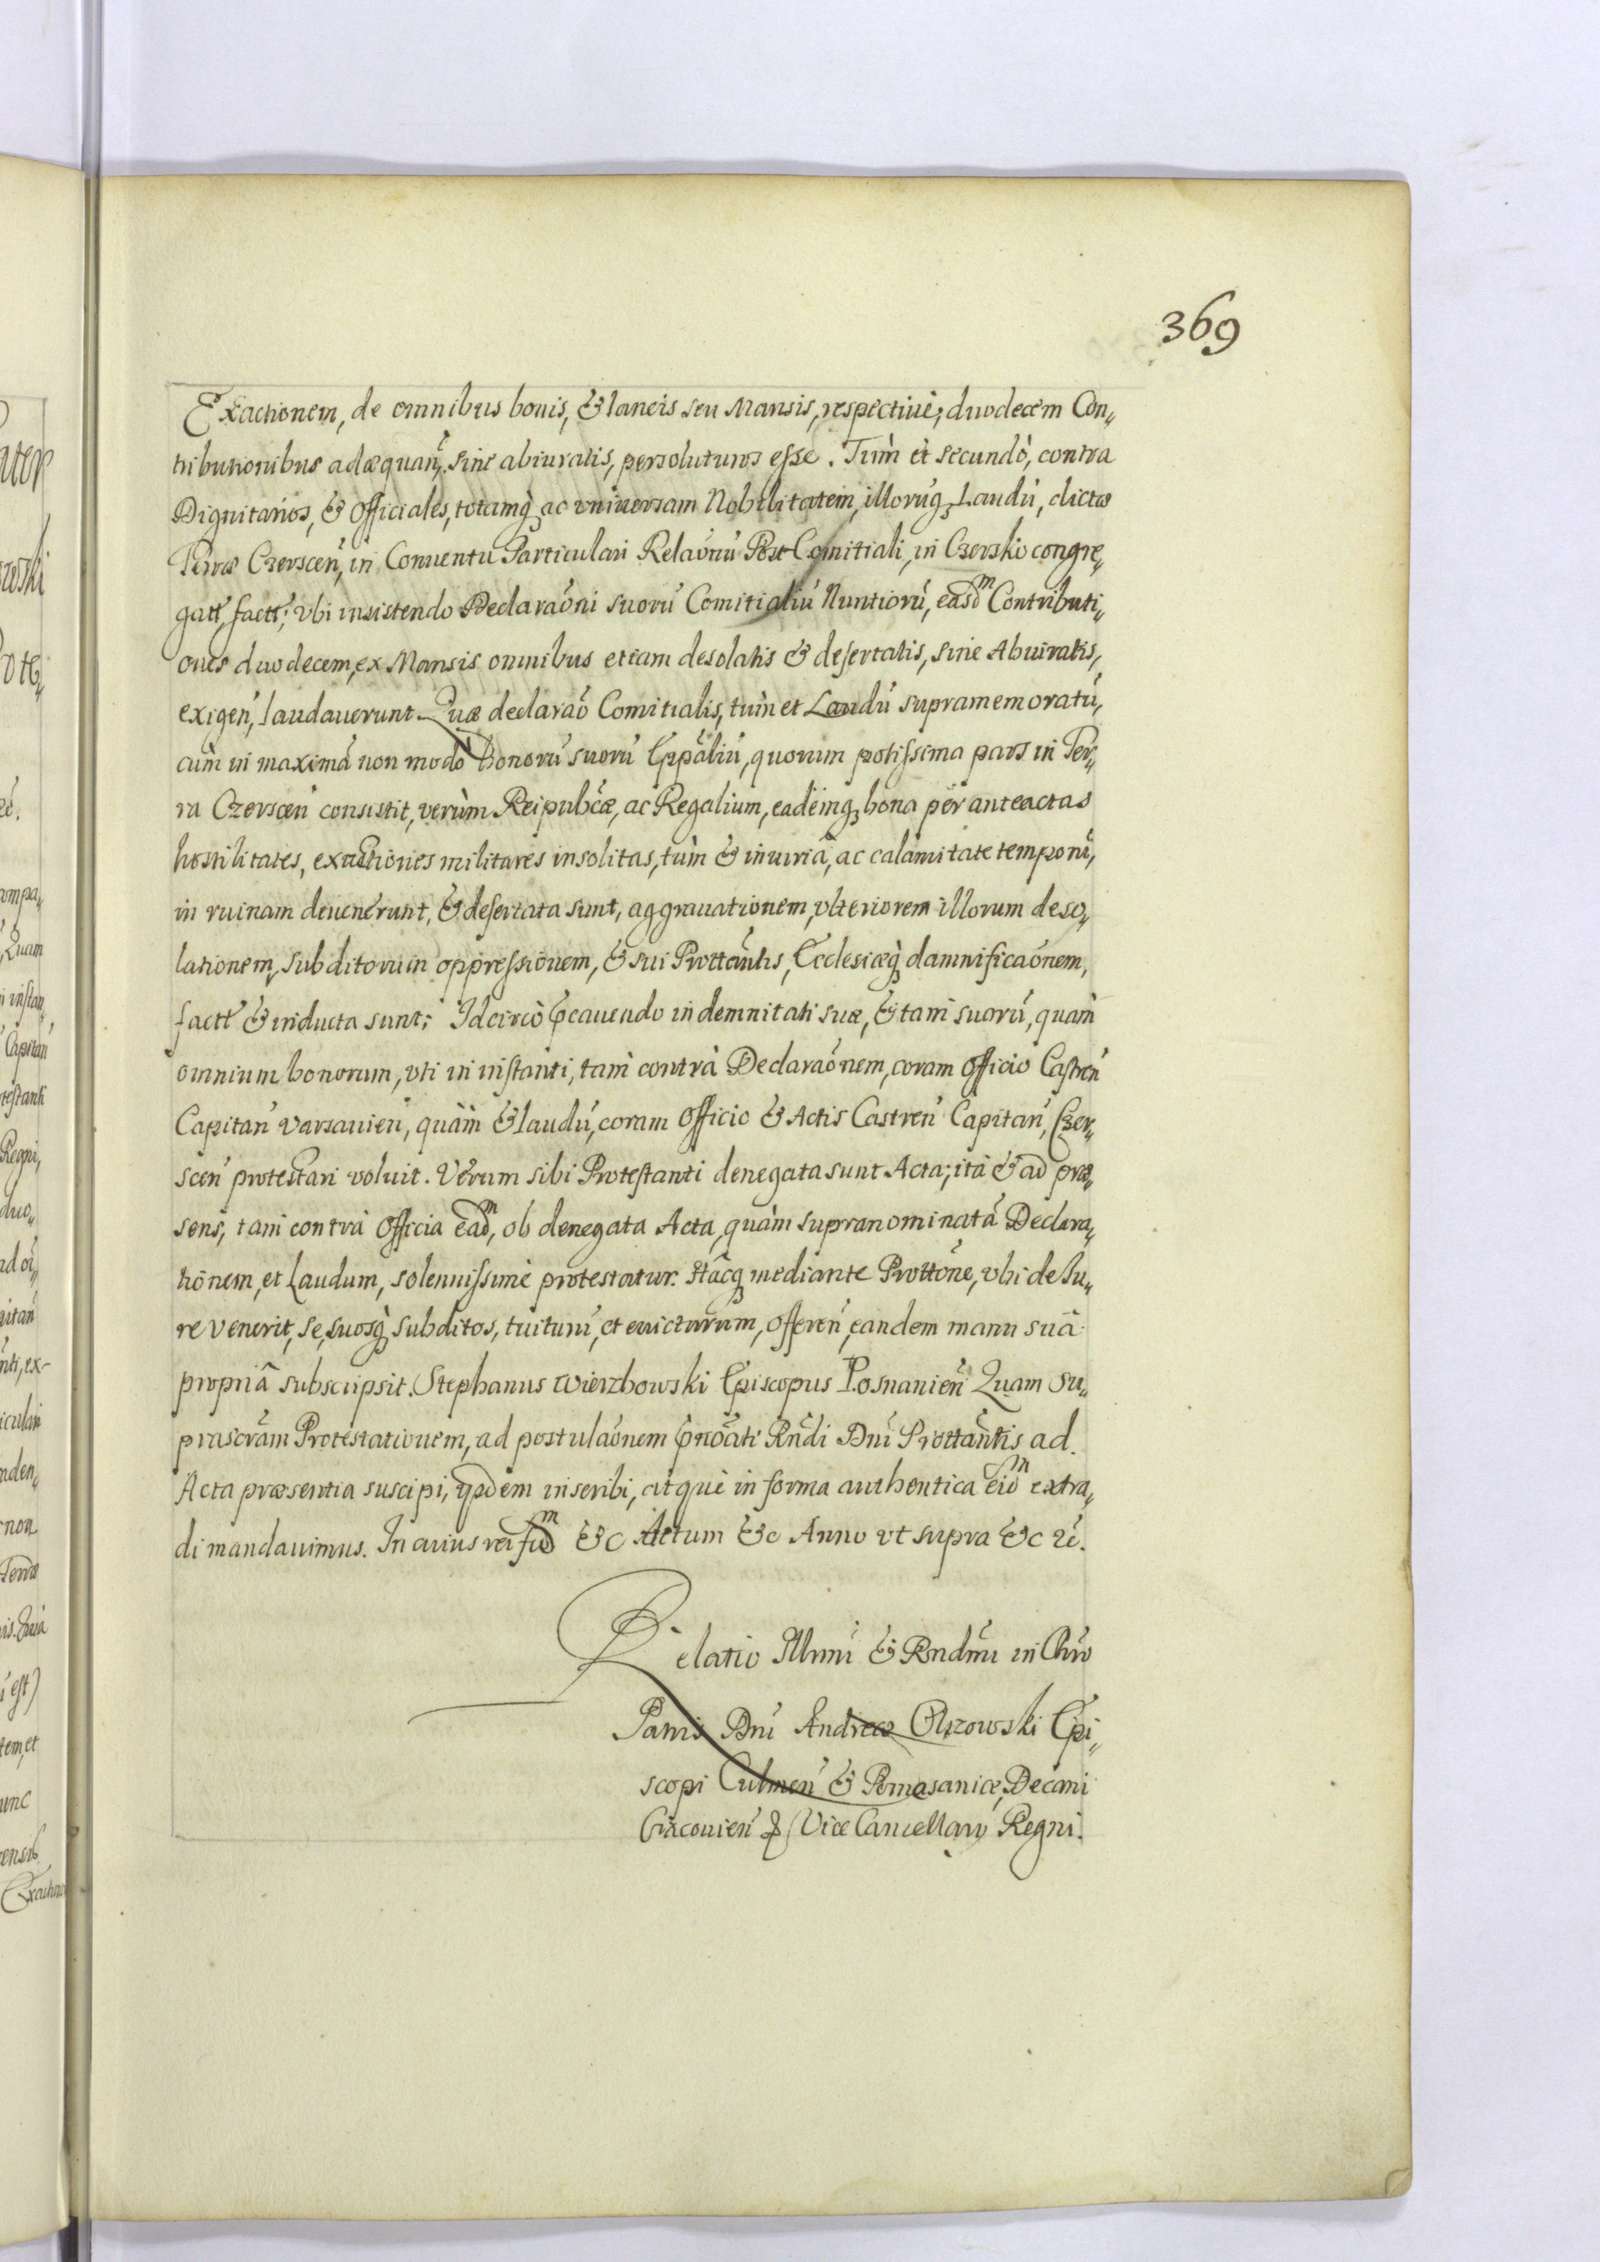 369
Exactionem, de omnibus bonis, & laneis seu Mansis, respectivè, duodecem Con„
tributionibus adæquan̄, sine abiuratis, persoluturos esse. Tùm et secundò, contra
Dignitarios, & Officiales, totamq̧ ac vniuersam Nobilitatem, illorūq̧ Laudū, dictæ
Terræ Czerscen̄, in Conuentu Particulari Relaōnū Post Comitiali, in Czersko congre„
gatt̄, factt̄; vbi insistendo Declaraōni suorū Comitialiū Nuntiorū, easdᵐ Contributi„
ones duodecem, ex Mansis omnibus etiam desolatis & desertatis, sine Abiuratis,
exigen̄, laudauerunt. Quæ declaraō Comitialis, tùm et Laudū supramemoratū,
cùm in maximā non modò bonorū suorū Epp̄aliū, quorum potissima pars in Ter„
ra Czerscen̄ consistit, verùm Reipub̄cæ, ac Regalium, eademq̧ bona per anteactas
hostilitates, exactiones militares insolitas, tùm & iniuriâ, ac calamitate temporū,
in ruinam deuenerunt, & desertata sunt, aggrauationem, vlteriorem illorum deso„
lationem, subditorum oppressionem, & sui Prottān̄tis, Ecclesiæq̧ damnificaōnem,
factt̄ & inducta sunt; Idcircò p̄cauendo indemnitati suæ, & tam suorū, quàm
omnium bonorum, vti in instanti, tam contrà Declaraōnem, coram Officio Castren̄
Capitan̄ Varsauien̄, quàm & laudū, coram Officio & Actis Castren̄ Capitan̄, Czer„
scen̄ protestari voluit. Verum sibi Protestanti denegata sunt Acta; ità & ad præ„
sens, tam contrà Officia eadᵐ, ob denegata Acta, quàm supranominatā Declara„
tionem, et Laudum, solennissimè protestatur. Hācq̧ mediante Prottōne, vbi de Iu„
re venerit, se, suosq̧ subditos, tuiturū, et euicturum, offeren̄, eandem manu suâ
propriâ subscripsit. Stephanus Wierzbowski Episcopus Posnanien̄ Quam su„
prascr̄am Protestationem, ad postulaōnem p̄nōāti Rn̄di Dn̄i Prottān̄tis ad
Acta præsentia suscipi, ijsdem inscribi, atque in forma authentica eidᵐ extra„
di mandauimus. In cuius rei fidᵐ &c Actum &c Anno vt supra &c ꝛc̄.
Relatio Illm̄i & Rndm̄i in Chr̄o
Patris Dn̄i Andreæ Olszowski Epi„
scopi Culmen̄ & Pomesaniæ, Decani
Cracouien̄ & Vice Cancellarij Regni.